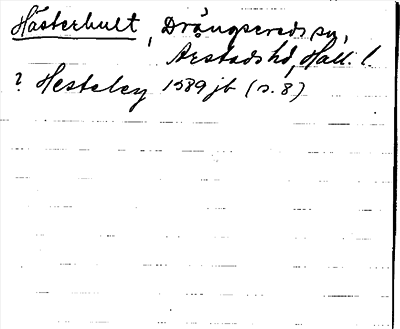 Hästerhult, Drängsereds sn,
Årstads hd, Hall. l.
? Hesteley 1589 jb (s. 8)